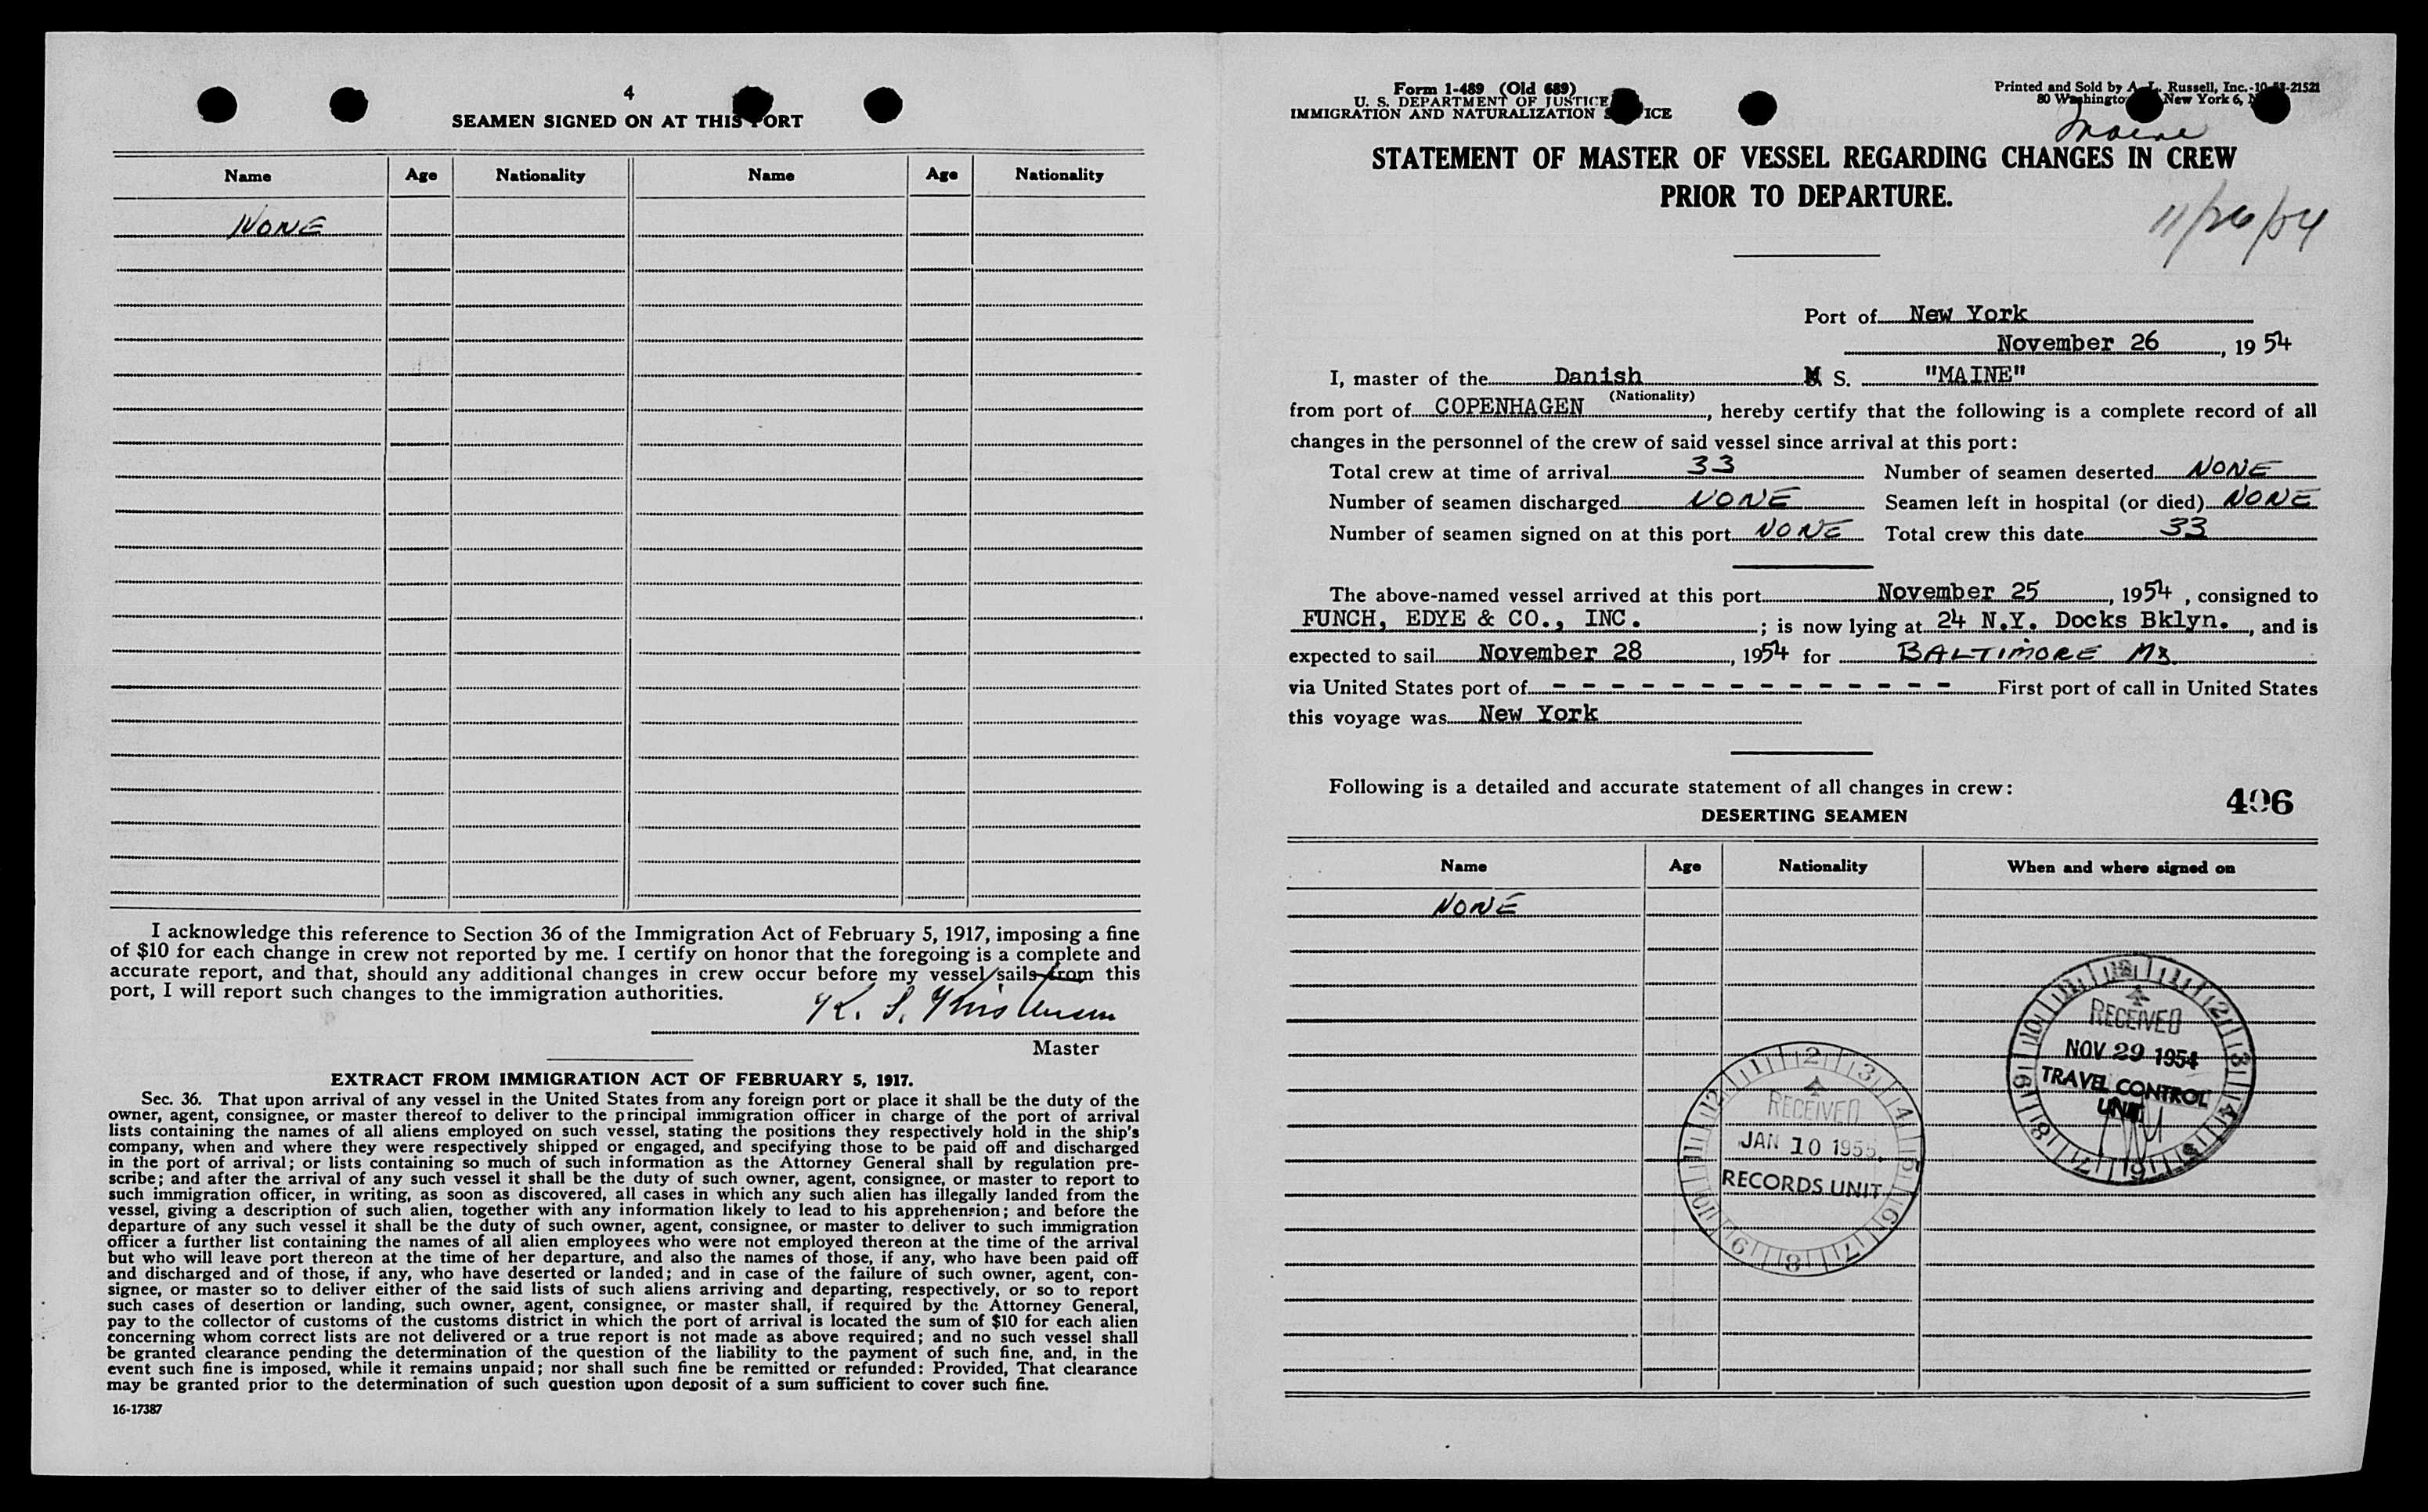 4
SEAMEN SIGNED ON AT THIS PORT
Name Age Nationality Name Age Nationality
NONE
I acknowledge this reference to Section 36 of the Immigration Act of February 5, 1917, imposing a fine
of $10 for each change in crew not reported by me. I certify on honor that the foregoing is a complete and
accurate report, and that, should any additional changes in crew occur before my vessel sails from this
port, I will report such changes to the immigration authorities.
K. S. Kristensen
Master
EXTRACT FROM IMMIGRATION ACT OF FEBRUARY 5, 1917.
Sec. 36. That upon arrival of any vessel in the United States from any foreign port or place it shall be the duty of the
owner, agent, consignee, or master thereof to deliver to the principal immigration officer in charge of the port of arrival
lists containing the names of all aliens employed on such vessel, stating the positions they respectively hold in the ship's
company, when and where they were respectively shipped or engaged, and specifying those to be paid off and discharged
in the port of arrival; or lists containing so much of such information as the Attorney General shall by regulation pre-
scribe; and after the arrival of any such vessel it shall be the duty of such owner, agent, consignee, or master to report to
such immigration officer, in writing, as soon as discovered, all cases in which any such alien has illegally landed from the
vessel, giving a description of such alien, together with any information likely to lead to his apprehension; and before the
departure of any such vessel it shall be the duty of such owner, agent, consignee, or master to deliver to such immigration
officer a further list containing the names of all alien employees who were not employed thereon at the time of the arrival
but who will leave port thereon at the time of her departure, and also the names of those, if any, who have been paid off
and discharged and of those, if any, who have deserted or landed; and in case of the failure of such owner, agent, con-
signee, or master so to deliver either of the said lists of such aliens arriving and departing, respectively, or so to report
such cases of desertion or landing, such owner, agent, consignee, or master shall, if required by the Attorney General,
pay to the collector of customs of the customs district in which the port of arrival is located the sum of $10 for each alien
concerning whom correct lists are not delivered or a true report is not made as above required; and no such vessel shall
be granted clearance pending the determination of the question of the liability to the payment of such fine, and, in the
event such fine is imposed, while it remains unpaid; nor shall such fine be remitted or refunded: Provided, That clearance
may be granted prior to the determination of such question upon deposit of a sum sufficient to cover such fine.
16-17387
Form 1-489 (Old 689)
U. S. DEPARTMENT OF JUSTICE
IMMIGRATION AND NATURALIZATION SERVICE
Printed and Sold by A. L. Russell, Inc.-10-53-21521
80 Washington New York 6,
Maine
STATEMENT OF MASTER OF VESSEL REGARDING CHANGES IN CREW
PRIOR TO DEPARTURE.
11/26/54
Port of New York
November 26, 1954
I, master of the Danish M S. "MAINE"
(Nationality)
from port of COPENHAGEN, hereby certify that the following is a complete record of all
changes in the personnel of the crew of said vessel since arrival at this port:
Total crew at time of arrival 33 Number of seamen deserted NONE
Number of seamen discharged NONE Seamen left in hospital (or died) NONE
Number of seamen signed on at this port NONE Total crew this date 33
The above-named vessel arrived at this port November 25, 1954, consigned to
FUNCH, EDYE & CO., INC. ; is now lying at 24 N.Y. Docks Bklyn., and is
expected to sail November 28, 1954 for BALTIMORE MD.
via United States port of - - - - - - - - - - - - - - First port of call in United States
this voyage was New York
Following is a detailed and accurate statement of all changes in crew:
496
DESERTING SEAMEN
Name Age Nationality When and where signed on
NONE
RECEIVED
NOV 29 1954
TRAVEL CONTROL
UNIT
RECEIVED
JAN 10 1955
RECORDS UNIT